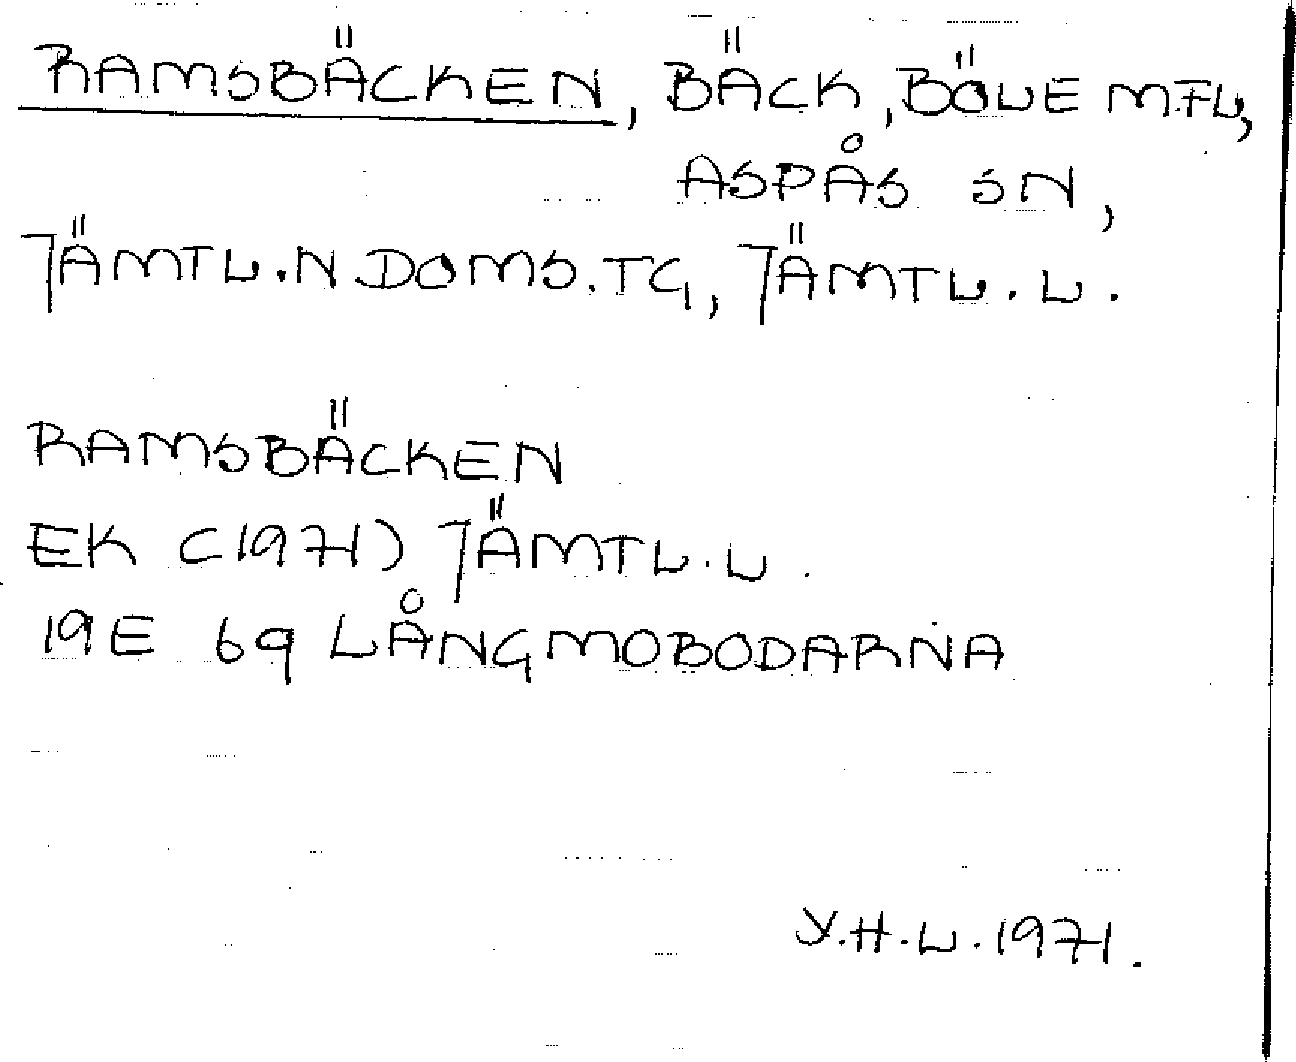 RAMSBÄCKEN, BÄCK, BÖLE MFL,
ASPÅS SN,
JÄMTL.N DOMS.TG, JÄMTL.L.
RAMSBÄCKEN
EK (1971) JÄMTL.L.
19E 69 LÅNGMOBODARNA
Y.H.L.1971.